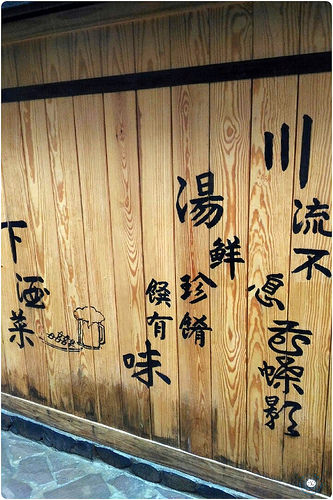 川流不息影
湯鮮珍餚饌有味
下酒菜